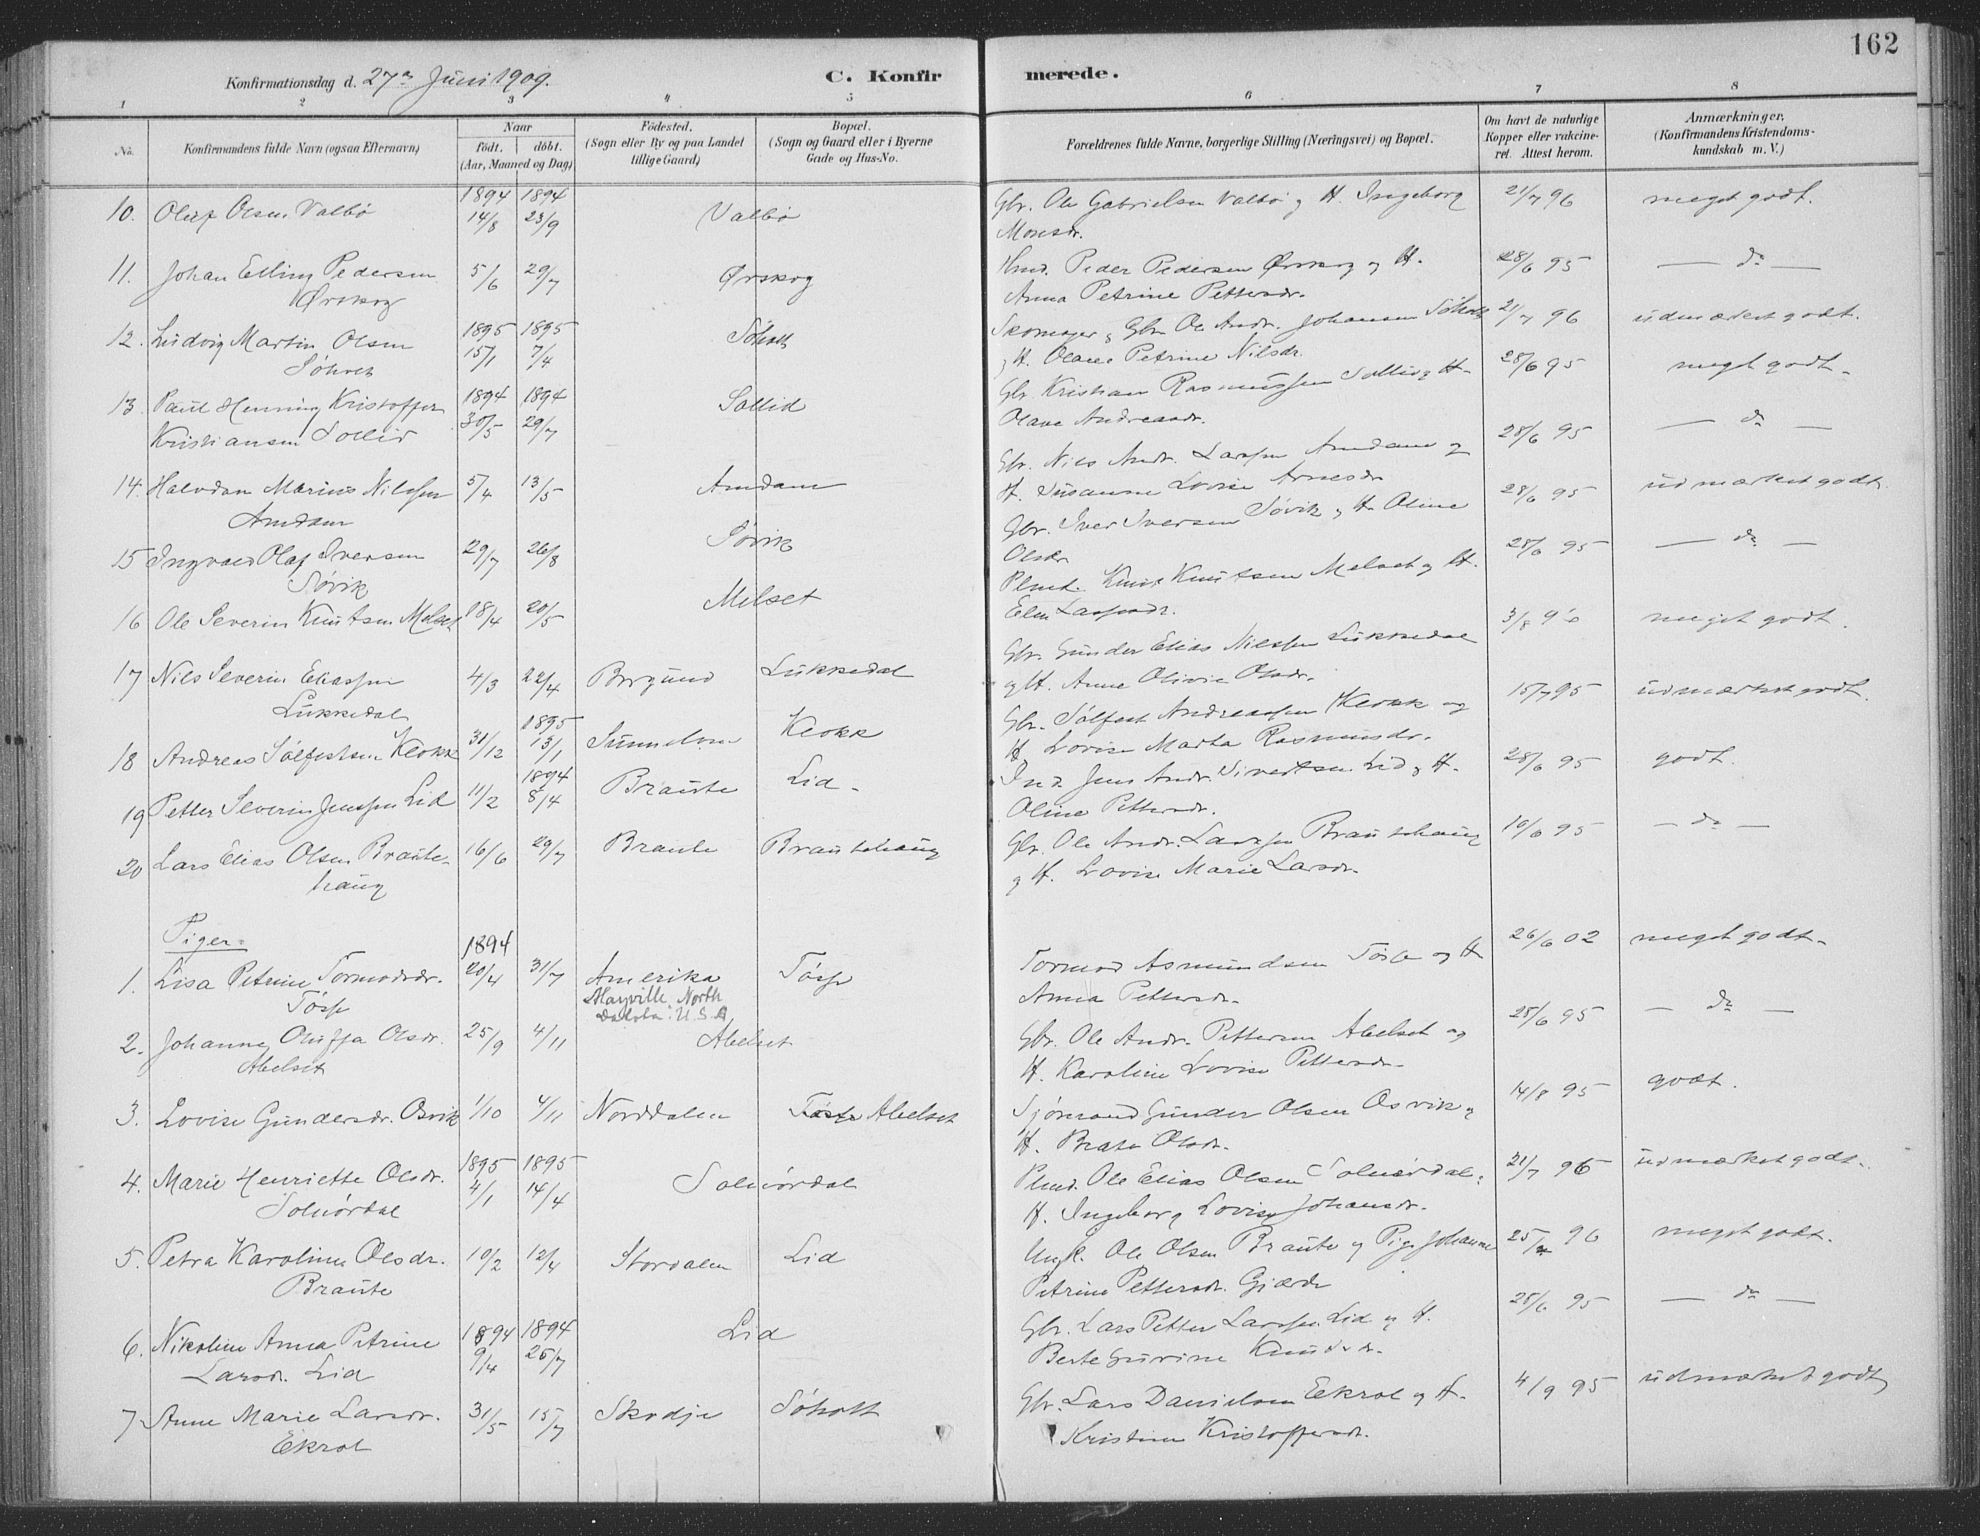 162
Konfirmationsdag d. 27de Juni 1909.
C. Konfirmerede.
1 2 3 4 5 6 7 8
No.
Konfirmandens fulde Navn (ogsaa Efternavn)
Naar
født. døbt.
(Aar, Maaned og Dag)
Fødested.
(Sogn eller By og paa Landet
tillige Gaard)
Bopæl.
(Sogn og Gaard eller i Byerne
Gade og Hus-No.
Forældrenes fulde Navne, borgerlige Stilling (Næringsvei) og Bopæl.
Om havt de naturlige
Kopper eller vakcine-
ret. Attest herom.
Anmærkninger,
(Konfirmandens Kristendoms-
kundskab m. V.)
10. Oluf Olsen Valbø 1894 14/8 1894 23/9 Valbø Gbr. Ole Gabrielsen Valbø og H. Ingeborg 21/7 96 meget godt.
Monsdr.
11. Johan Elling Pedersen 5/6 29/7 Ørskog Hmd. Peder Pedersen Ørskog og H. 28/6 95 — do —
Ørskog Anna Petrine Pettersdr.
12. Ludvig Martin Olsen 1895 15/1 1895 7/4 Søholt Skomager og Gbr. Ole Andr. Johansen Søholt 21/7 96 udmærket godt.
Søholt og H. Olave Petrine Nilsdr.
13. Paul Henning Kristoffer 1894 30/5 1894 29/7 Sollid Gbr Kristian Rasmussen Sollid og H. 28/6 95 meget godt.
Kristiansen Sollid Olave Andreasdr.
14. Halvdan Marius Nilssen 5/4 13/5 Amdam Gbr. Nils Andr. Larssen Amdam og 28/6 95 — do —
Amdam H. Susanne Lovise Arnesdr
15 Ingvald Olaf Iversen 29/7 26/8 Søvik Gbr. Iver Iversen Søvik og H. Oline 28/6 95 udmærket godt.
Søvik Olsdr
16 Ole Severin Knutsen Melset 18/4 20/5 Melset Plmd. Knut Knutsen Melset og H. 28/6 95 — do —
Elen Larsdr.
17 Nils Severin Eliassen 4/3 22/4 Borgund Lukkedal Gbr. Gunder Elias Nilssen Lukkedal 3/8 96 meget godt.
Lukkedal og H. Anne Olivie Olsdr.
18 Andreas Sølfestsen Klokk 31/12 1895 13/1 Sunnelven Klokk Gbr. Sølfest Andreassen Klokk og 15/7 95 udmærket godt.
H. Lovise Marta Rasmusdr.
19 Petter Severin Jenssen Lid 11/2 1894 8/4 Braute Lid Ind. Jens Andr. Sivertsen Lid og H. 28/6 95 godt.
Oline Pettersdr.
20 Lars Elias Olsen Braute- 16/6 29/7 Braute Brautehaug Gbr. Ole Andr. Larssen Brautehaug 19/6 95 — do —
haug og H. Lovise Marie Larsdr.
Piger. 1894
1. Lisa Petrine Tormodsdr. 20/4 31/7 Amerika Tøsse Tormod Asmundsen Tøsse og H 26/6 02 meget godt.
Tøsse Mayville, North Dakota: U.S.A Anna Pettersdr.
2. Johanne Oluffa Olsdr. 25/9 4/11 Abelset Gbr. Ole Andr. Pettersen Abelset og 28/6 95 — do —
Abelset H. Karoline Lovise Pettersdr.
3. Lovise Gundersdr. Osvik 1/10 4/11 Norddalen Abelset Sjømand Gunder Olsen Osvik og 14/8 95 godt.
H. Beate Olsdr.
4. Marie Henriette Olsdr. 1895 4/1 1895 14/4 Solnørdal Plmd. Ole Elias Olsen Solnørdal 21/7 96 udmærket godt.
Solnørdal H. Ingeborg Lovise Johansdr.
5. Petra Karoline Olsdr. 10/2 12/4 Stordalen Lid Ungk. Ole Olsen Braute og Pige Johanne 25/ 96 meget godt.
Braute Petrine Pettersdr. Gjærde
6. Nikoline Anna Petrine 1894 9/4 1894 25/7 Lid Gbr. Lars Petter Larssen Lid og H. 28/6 95 — do —
Larsdr. Lid Berte Gurine Knutsdr.
7 Anne Marie Larsdr. 31/5 15/7 Skodje Søholt Gbr. Lars Danielsen Ekrol og H. 4/9 95 udmærket godt
Ekrol Kristine Kristoffersdr.